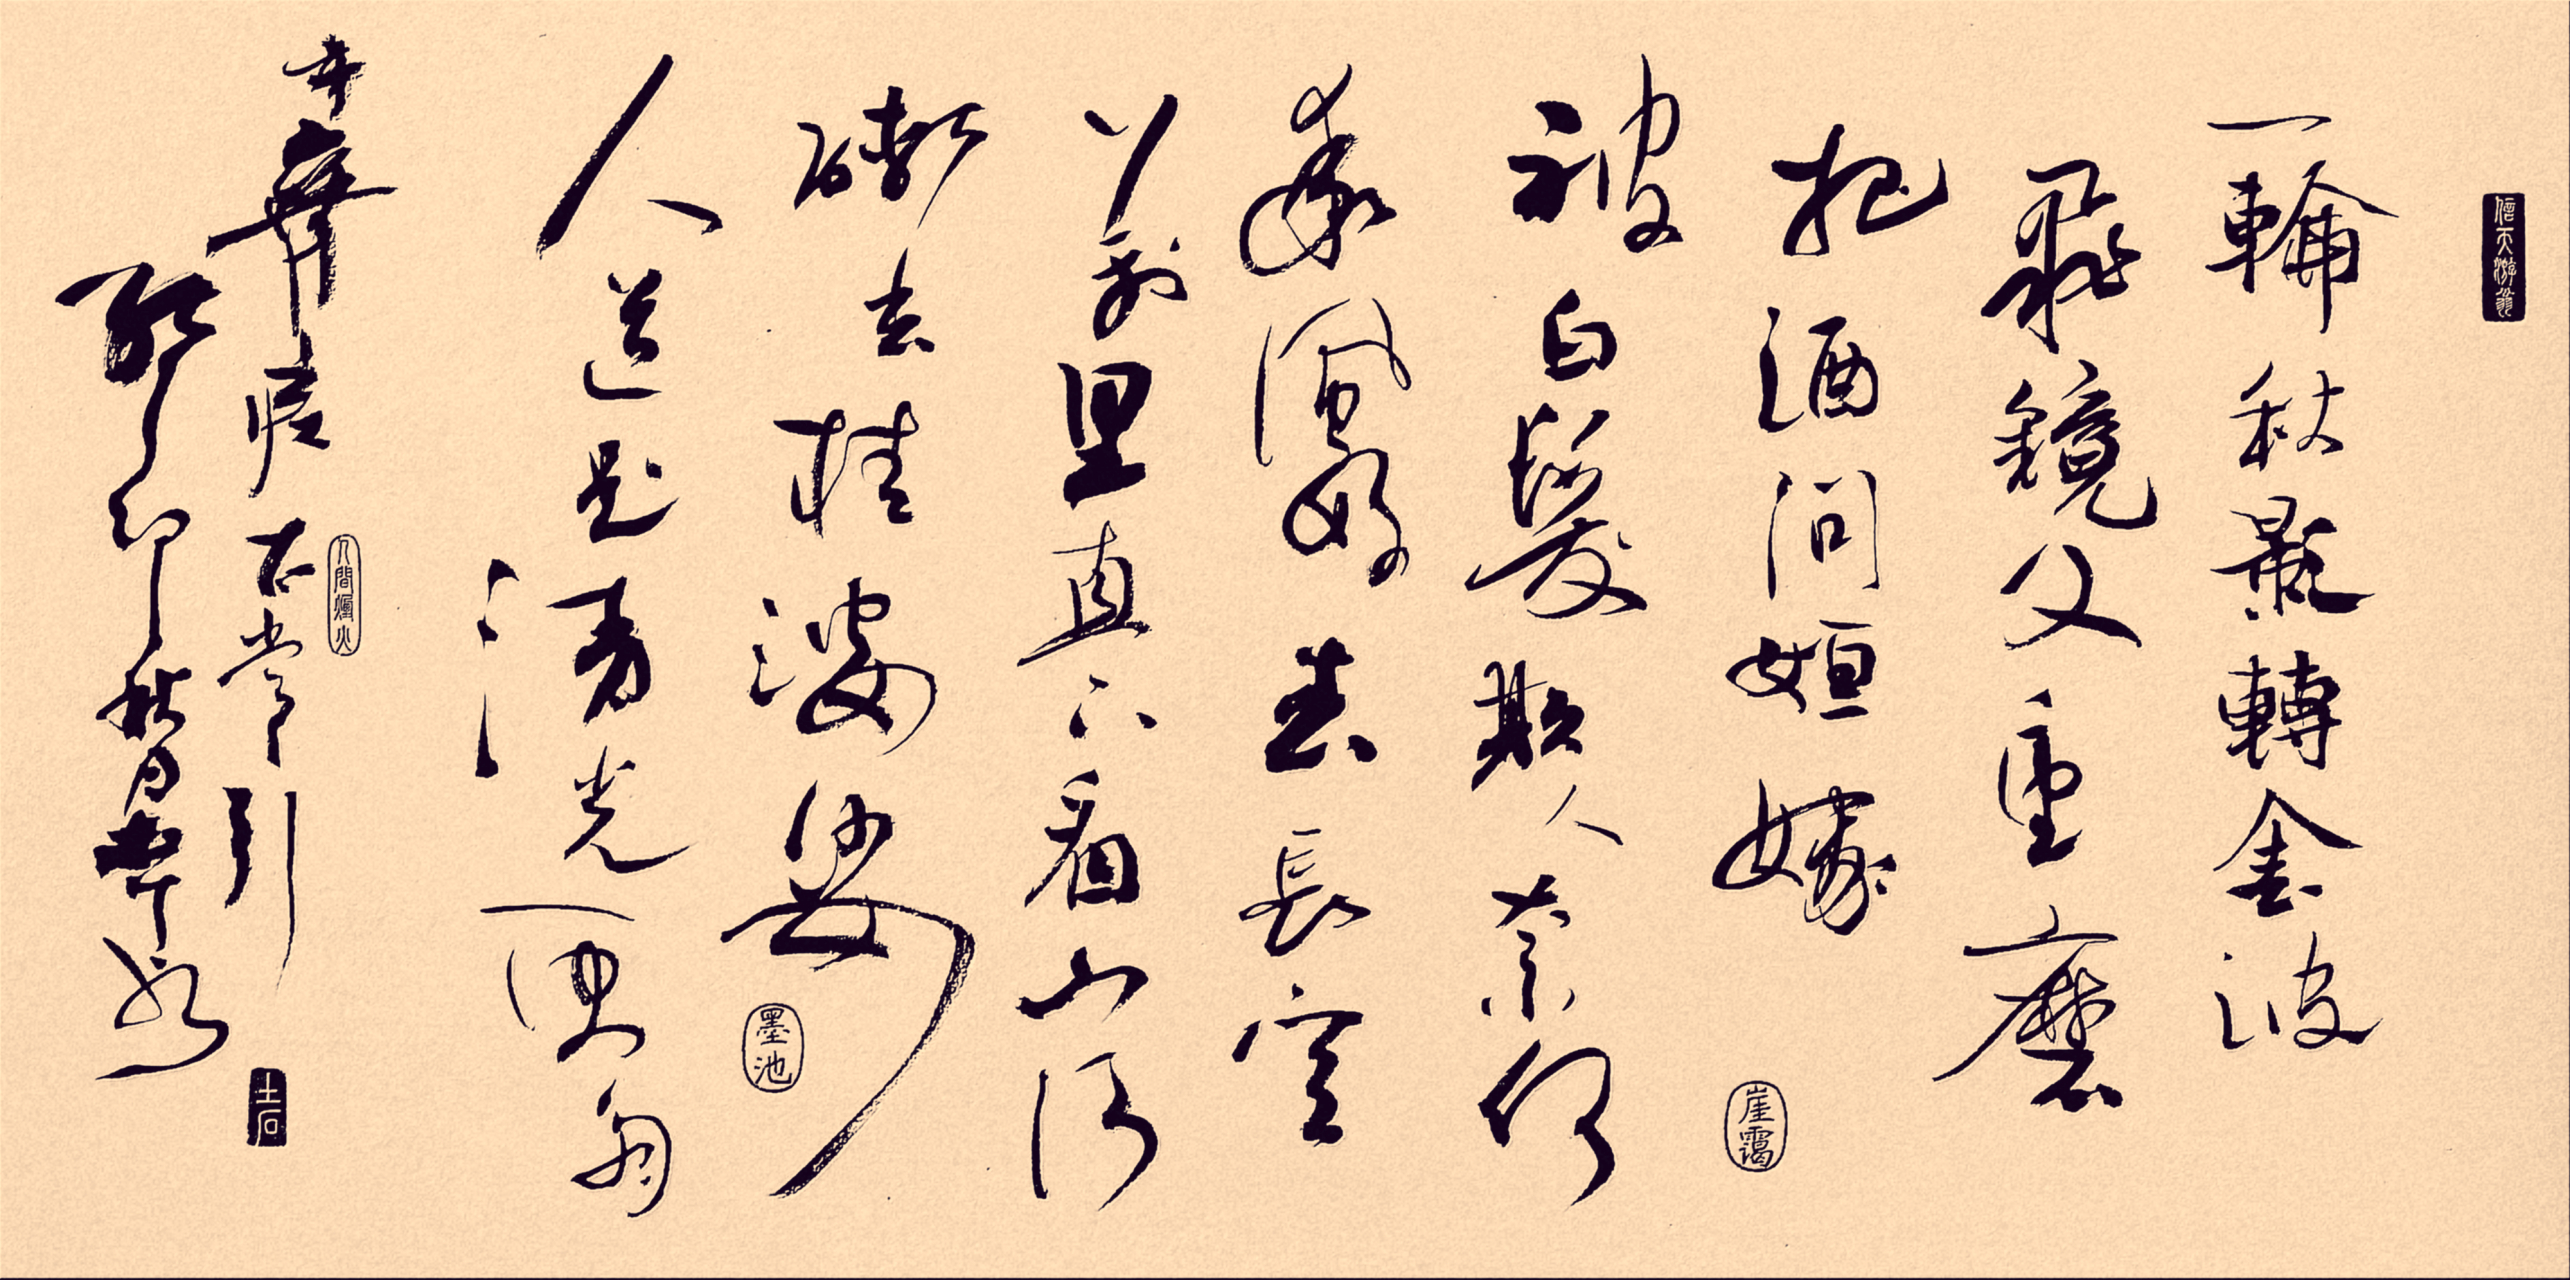 信天游翁
一輪秋影轉金波
飛鏡又重磨
把酒问姮娥
崖靄
被白髮欺人奈何
乘風好去長空
万里直下看山河
斫去桂婆娑
墨池
人道是清光更多
人間煙火
辛棄疾太常引
土石
卯秋月